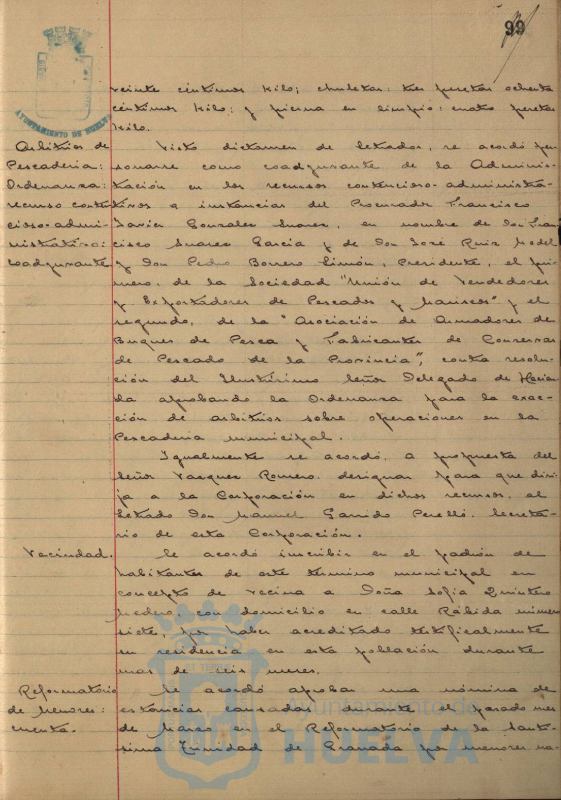 99
AYUNTAMIENTO DE HUELVA
veinte céntimos kilo; chuletas: tres pesetas ochenta
céntimos kilo; y pierna en limpio: cuatro pesetas
kilo.
Arbitrios de
Pescadería:
Ordenanza:
recurso conten
cioso-admi-
nistrativo:
coadyuvante
Visto dictamen de Letrados, se acordó per-
sonarse como coadyuvante de la Adminis-
tración en los recursos contencioso-administra-
tivos a instancias del Procurador Francisco
Javier Gonzalez Suarez, en nombre de don Fran-
cisco Suarez Garcia y de don José Ruiz Medel
y don Pedro Borrero Limón, Presidente, el pri-
mero, de la Sociedad "Unión de Vendedores
y Exportadores de Pescados y Mariscos" y el
segundo, de la "Asociación de Armadores de
Buques de Pesca y Fabricantes de Conservas
de Pescado de la Provincia", contra resolu-
ción del Ilustrísimo Señor Delegado de Hacien-
da aprobando la Ordenanza para la exac-
ción de arbitrios sobre operaciones en la
Pescadería municipal.
Igualmente se acordó, a propuesta del
Señor Vazquez Romero, designar para que diri-
ja a la Corporación en dichos recursos, al
Letrado don Manuel Garrido Perelló, Secreta-
rio de esta Corporación.
Vecindad.
Se acordó inscribir en el padrón de
habitantes de este término municipal en
concepto de vecina a Doña Sofia Quintero
Ledero, con domicilio en calle Rábida número
siete, por haber acreditado testificalmente
su residencia en esta población durante
mas de seis meses.
Reformatorio
de Menores:
cuenta.
Se acordó aprobar una nómina de
estancias causadas durante el pasado mes
de Marzo en el Reformatorio de la Santí-
sima Trinidad de Granada por menores na-
Ayuntamiento de
HUELVA